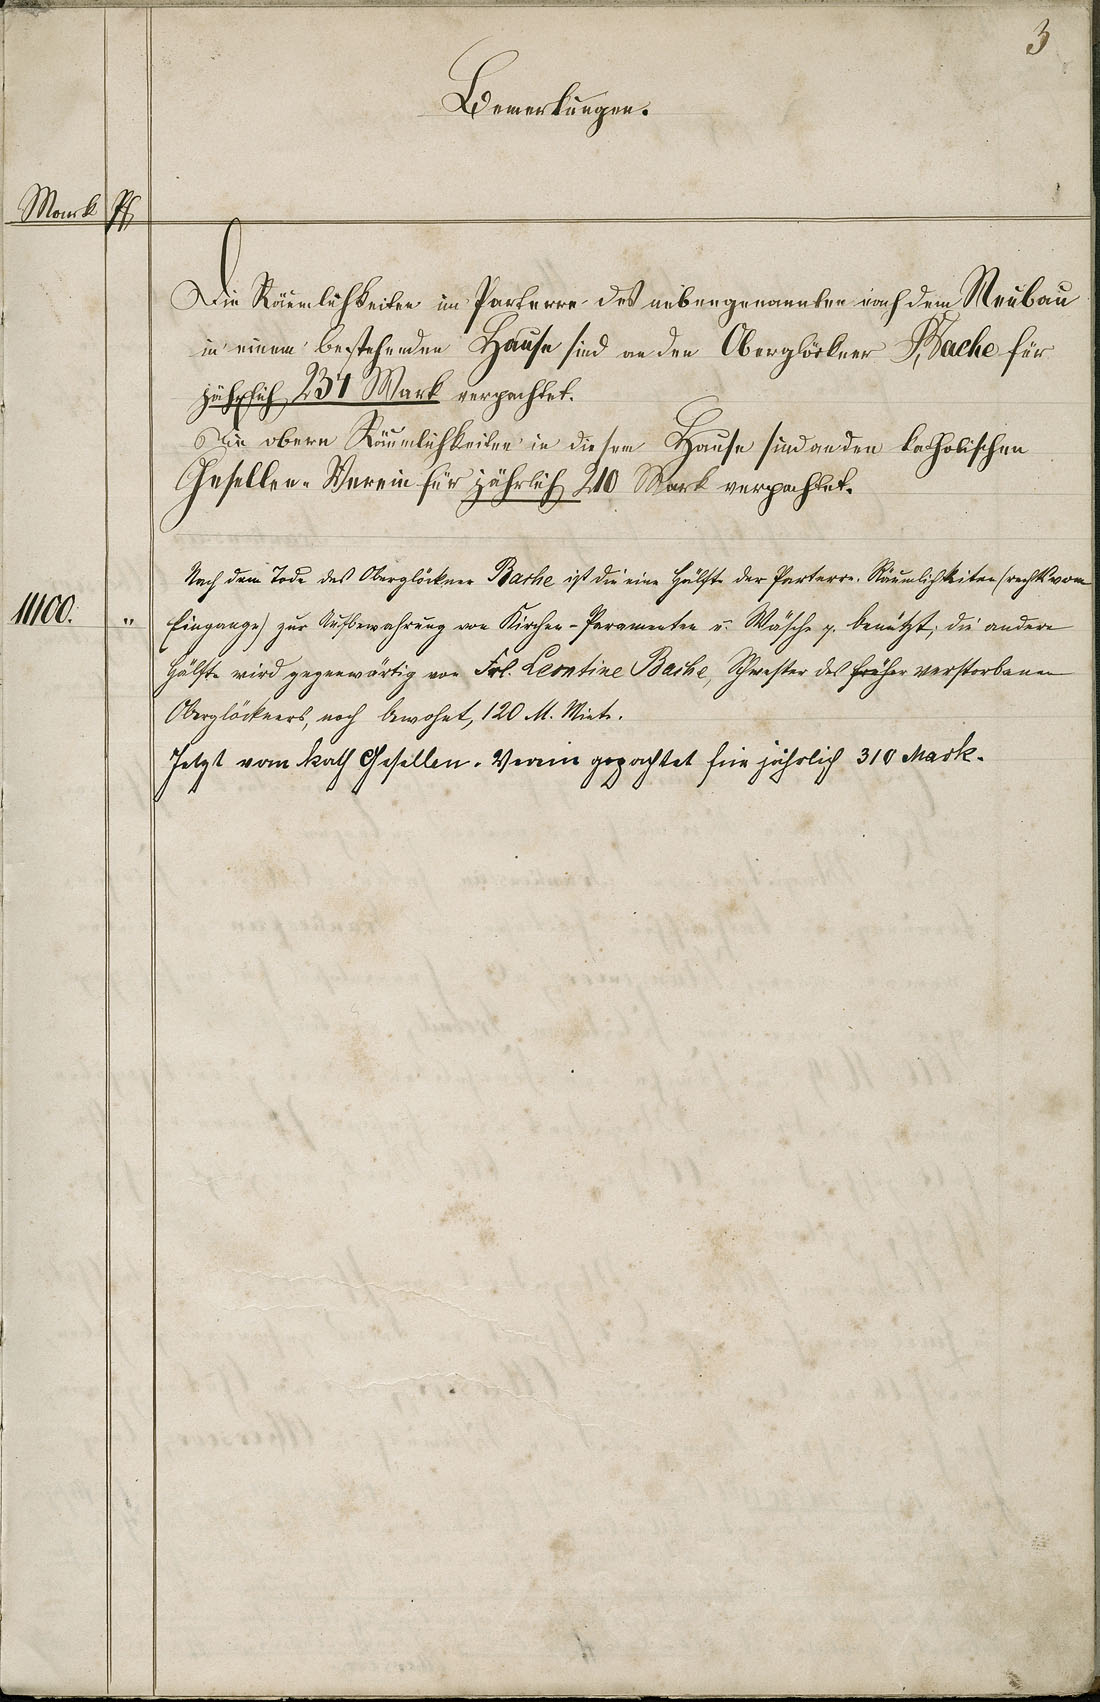 3
Bemerkungen.
Mark Pf
Die Räumlichkeiten im Parterre des nebengenannten nach dem Neubau
in einem bestehenden Hause sind an den Oberglöckner Bache für
jährlich 231 Mark verpachtet.
Die obern Räumlichkeiten in diesem Hause sind an den katholischen
Gesellen-Verein für jährlich 210 Mark verpachtet.
Nach dem Tode des Oberglöckner Bache ist die eine Hälfte der Parterre-Räumlichkeiten (rechts vom
11100. " Eingange) zur Aufbewahrung von Kirchen-Paramenten u. Wäsche p. benützt, die andere
Hälfte wird gegenwärtig von Frl. Leontine Bache, Schwester des früher verstorbenen
Oberglöckners, noch bewohnt, 120 M. Miete.
Jetzt vom kath Gesellen-Verein gepachtet für jährlich 310 Mark.